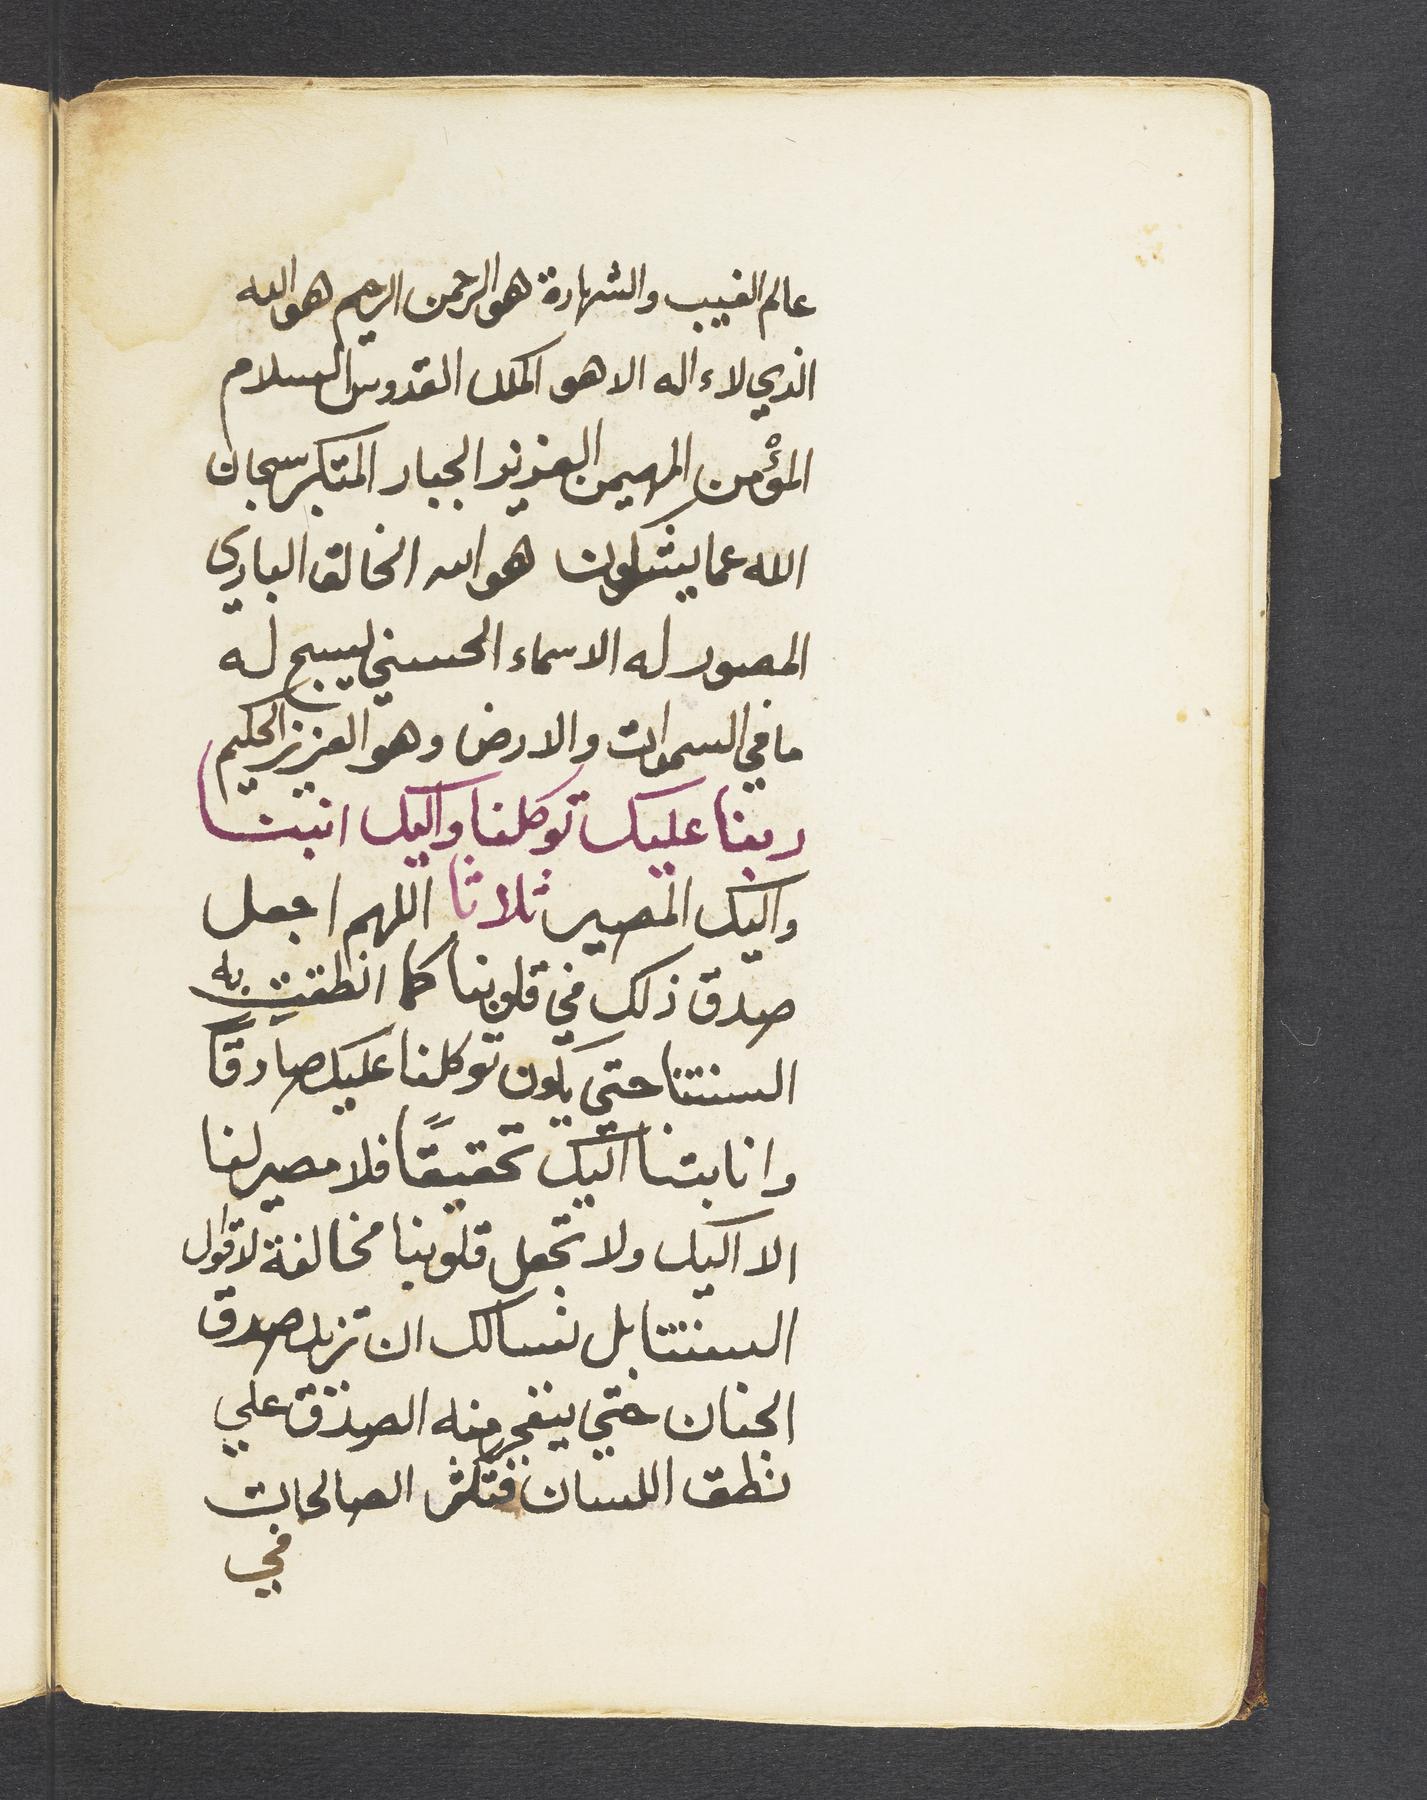 عالم الغيب والشهادة هو الرحمن الرحيم هو الله
الذي لاء اله الا هو الملك القدوس السلام
المؤمن المهيمن العزيز الجبار المتكبر سبحان
الله عما يشركون هو الله الخالق الباري
المصور له الاسماء الحسني يسبح له
ما في السموات والارض وهو العزيز الحكيم
ربنا عليك توكلنا واليك انبنا
واليك المصير ثلاثا اللهم اجعل
صدق ذلك في قلوبنا كما انطقت به
السنتنا حتي يكون توكلنا عليك صادقًا
وانابتنا اليك تحقيقًا فلا مصير لنا
الا اليك ولا تجعل قلوبنا مخالفة لاقوال
السنتنا بل نسالك ان تزيد صدق
الجنان حتي ينفجر منه الصدق علي
نطق اللسان فتكثر الصالحات
في